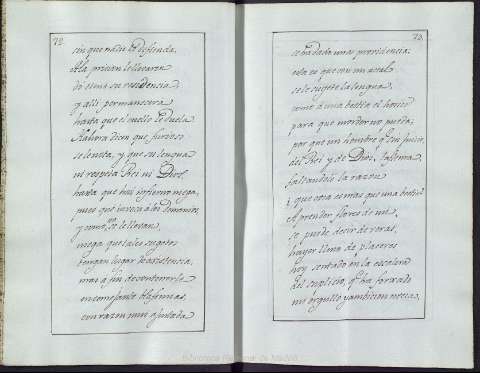 72.
sin que nadie lo defienda.
A la prision le llevaron
do tiene su residencia,
y alli permanecera
hasta que el cuello le duela.
Ahora dicen que furioso
se levita, y que su lengua
ni respeta Rei ni Dios,
hasta que hai infierno niega,
pues que invoca a los Demonios,
y como no le llevan,
niega que tales sugetos
tengan lugar ni existencia,
mas a fin de contenerle
en
con razon mui
73.
se ha dado unas providencias
esta es que con un
se le sugete la lengua,
como a una bestia el hocico
para que morder no pueda;
por que un hombre q.e sin juicio,
del Rei y de Dios, blasfema,
faltandole la razon
que es mas que una bestia?
Aprended flores de mi
se puede decir de veras,
hayer lleno de placeres
hoy sentado en la escalera
del suplicio, q.e ha forjado
su orgullo y ambicion necia.
Biblioteca Regional de Madrid